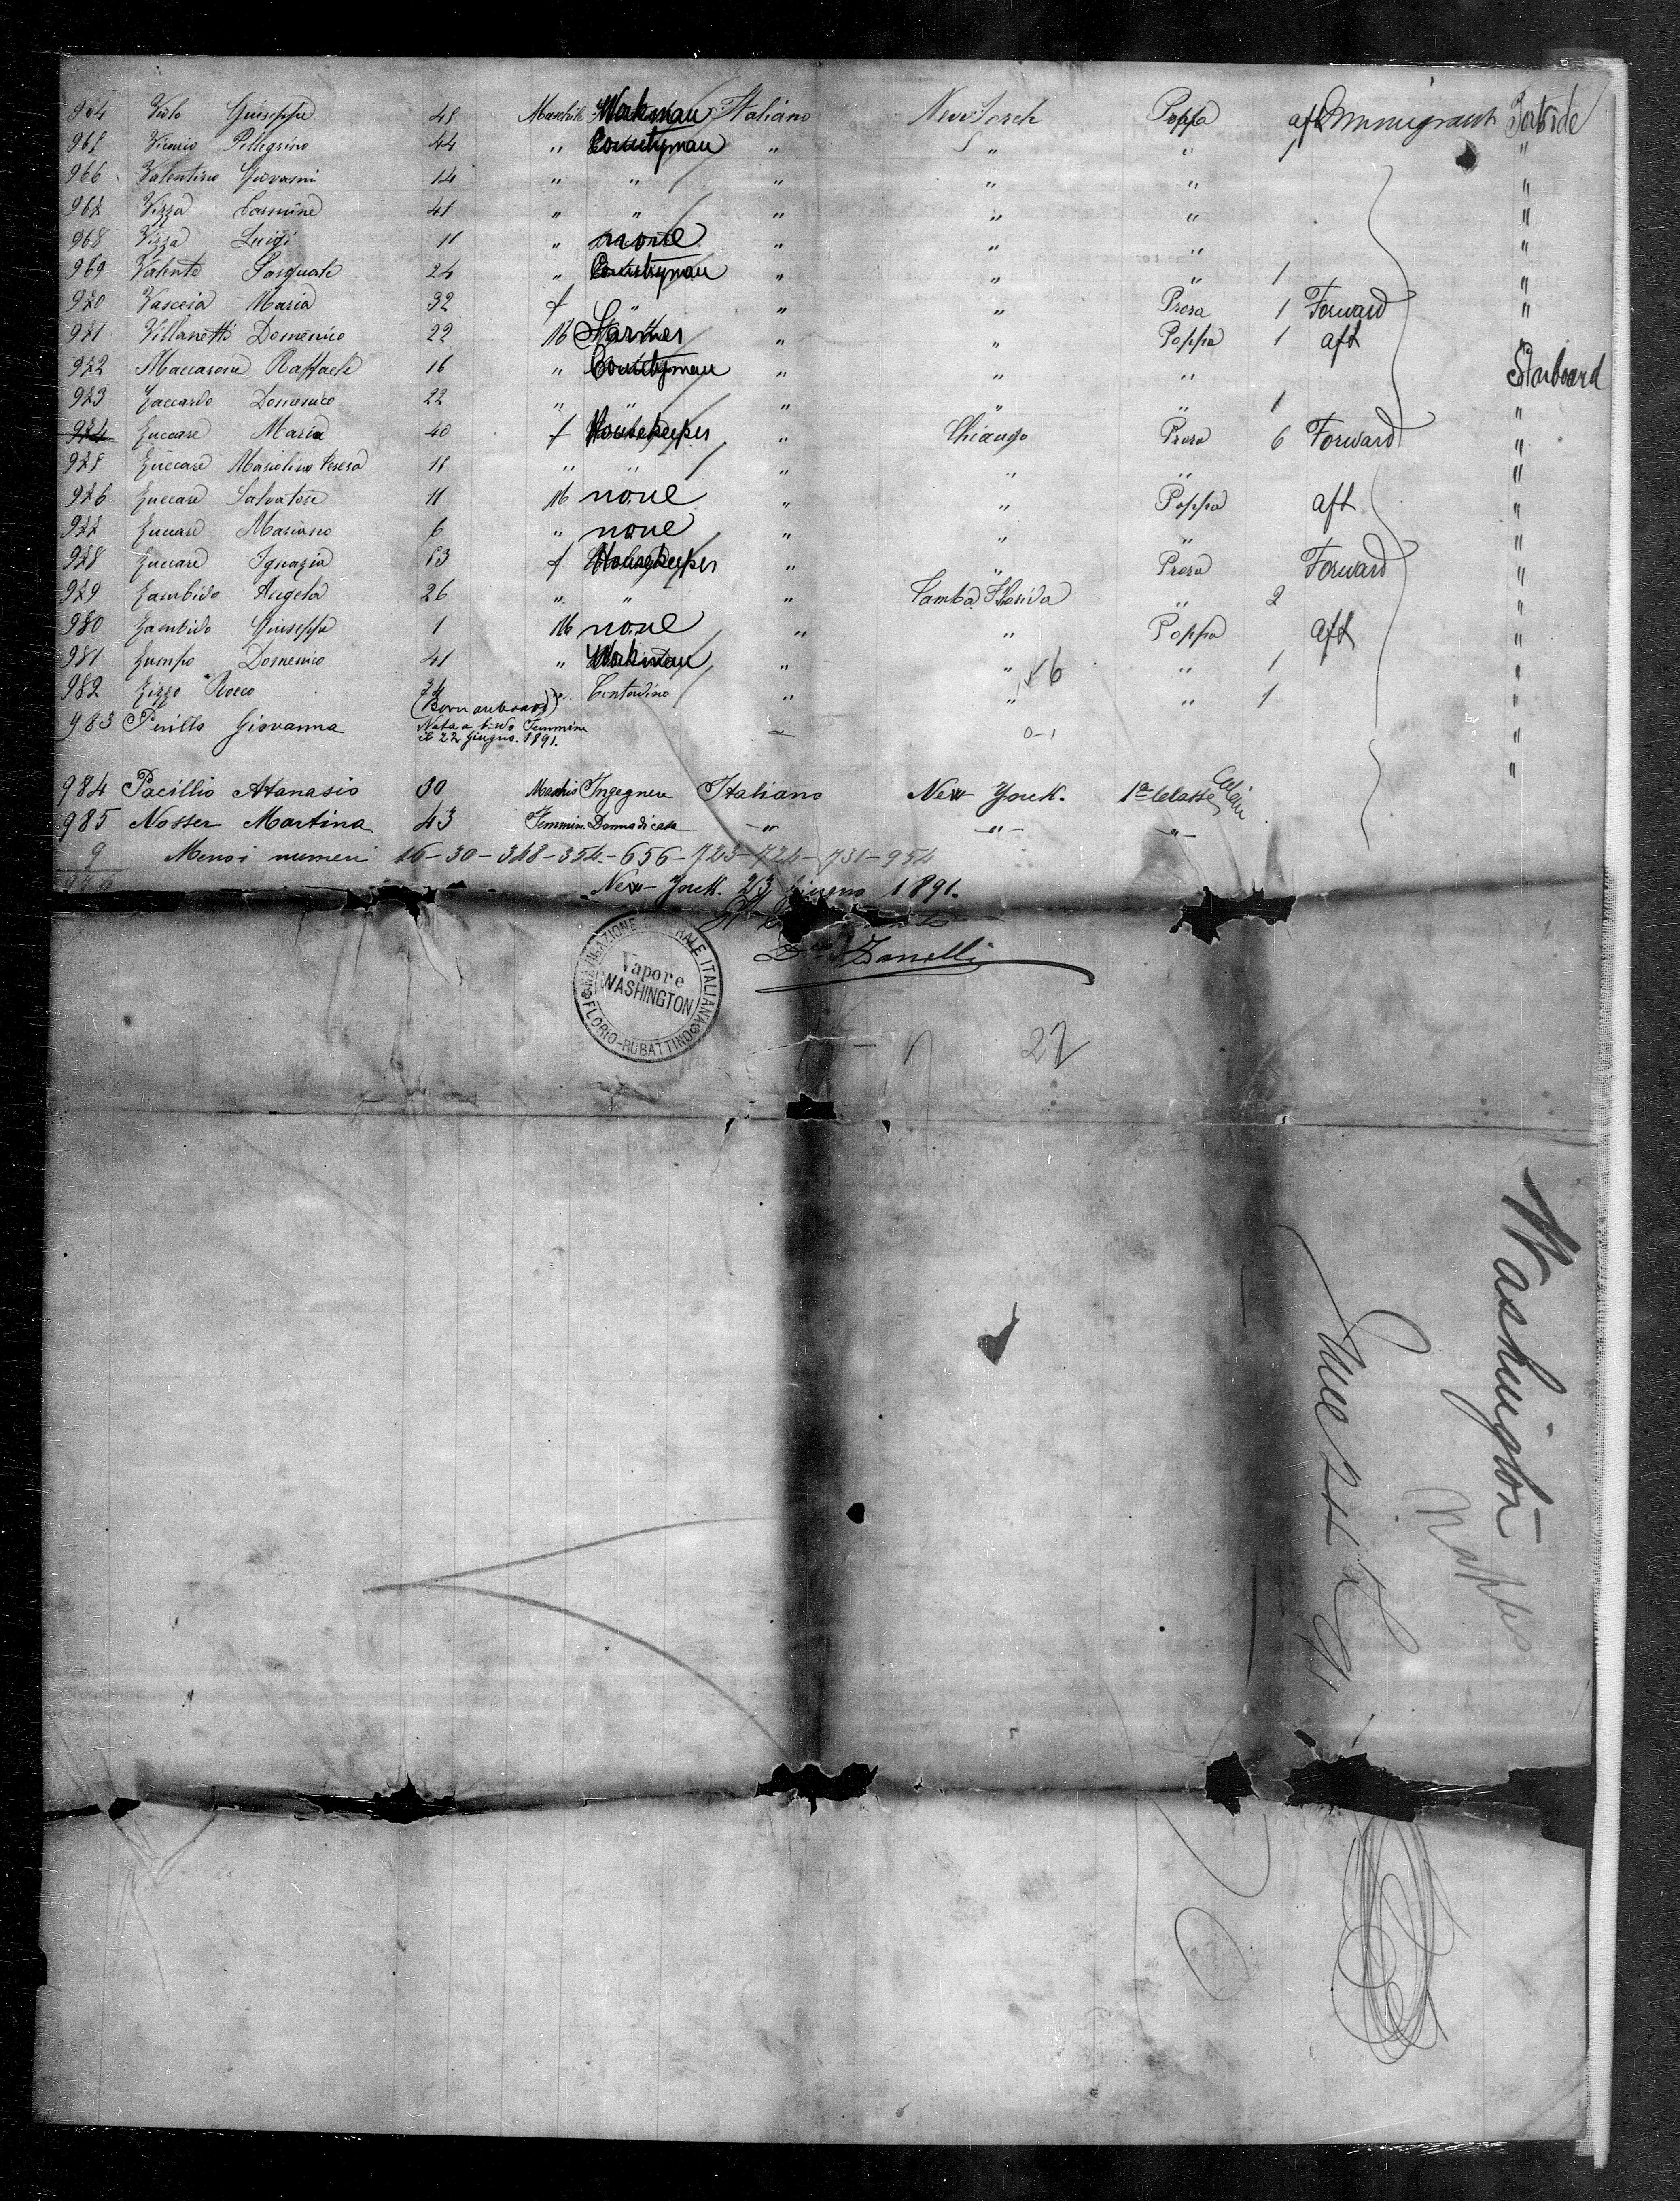 964 Violo Giuseppe 48 Maschile Workman Italiano New Yorck Poppa aft Immigrant Portside
965 Pellegrino 44 " Countryman " " " "
966 Valentino Giovanni 14 " " " " " "
967 Vizza Carmine 41 " " " " " "
968 Vizza Luigi 11 " none " " " "
969 Valente Pasquale 24 " Countryman " " " 1 "
970 Vasceia Maria 32 f " " " Prora 1 Forward "
971 Villanetti Domenico 22 M Farmer " " Poppa 1 aft "
972 Maccarone Raffaele 16 " Countryman " " " Starboard
973 Zaccardo Domenico 22 " " " " " 1 "
974 Zuccare Maria 40 f Housekeeper " Chicago Prora 6 Forward "
975 Zuccare Teresa 18 " " " " " "
976 Zuccare Salvatore 11 M none " " Poppa aft "
977 Zuccare Mariano 6 " none " " " "
978 Zuccare Ignazia 53 f Housekeeper " " Prora Forward "
979 Zambido Angela 26 " " " Tamba Florida " 2 "
980 Zambido Giuseppe 1 M none " " Poppa aft "
981 Zumpo Domenico 41 " Workman " " " 1 "
982 Zizzo Rocco 34 " Contadino " " " 1 "
(Born on board)
983 Perillo Giovanna Nata a bordo Femmina "
il 22 Giugno. 1891.
984 Pacillio Atanasio 30 Maschio Ingegnere Italiano New Yorck. 1a Classe "
985 Nosser Martina 43 Femmin. Donna di casa " " "
9 Menoi numeri 16-30-348-354-656-723-724-731-954
976
New-Yorck. 23 Giugno 1891.
Zanelli
NAVIGAZIONE GENERALE ITALIANA
Vapore
WASHINGTON
FLORIO-RUBATTINO
27
Washington
Naples
June 24th 91